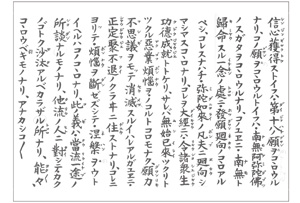 信心獲得ストイフハ、第十八ノ願ヲコヽロウル
ナリ、コノ願ヲコヽロウルトイフハ、南無阿彌陀佛
ノスガタヲコヽロウルナリ、コノユヘニ、南無ト
歸命スル一念ノ處ニ、發願廻向ノコヽロアル
ベシ、コレスナハチ彌陀如來ノ、凡夫ニ廻向シ
マシマスコヽロナリ、コレヲ大經ニハ、令諸衆生
功德成就トトケリ、サレバ無始已來ツクリト
ツクル惡業煩惱ヲ、ノコルトコロモナク、願力
不思議ヲモテ消滅スルイハレアルガユヘニ、
正定聚不退ノクラヰニ住ストナリ、コレニ
ヨリテ煩惱ヲ斷ゼズシテ涅槃ヲウト
イヘルハコノコヽロナリ、此義ハ當流一途ノ
所談ナルモノナリ、他流ノ人ニ對シテ、カクノ
ゴトク沙汰アルベカラザル所ナリ、能々
コヽロウベキモノナリ、アナカシコ〱